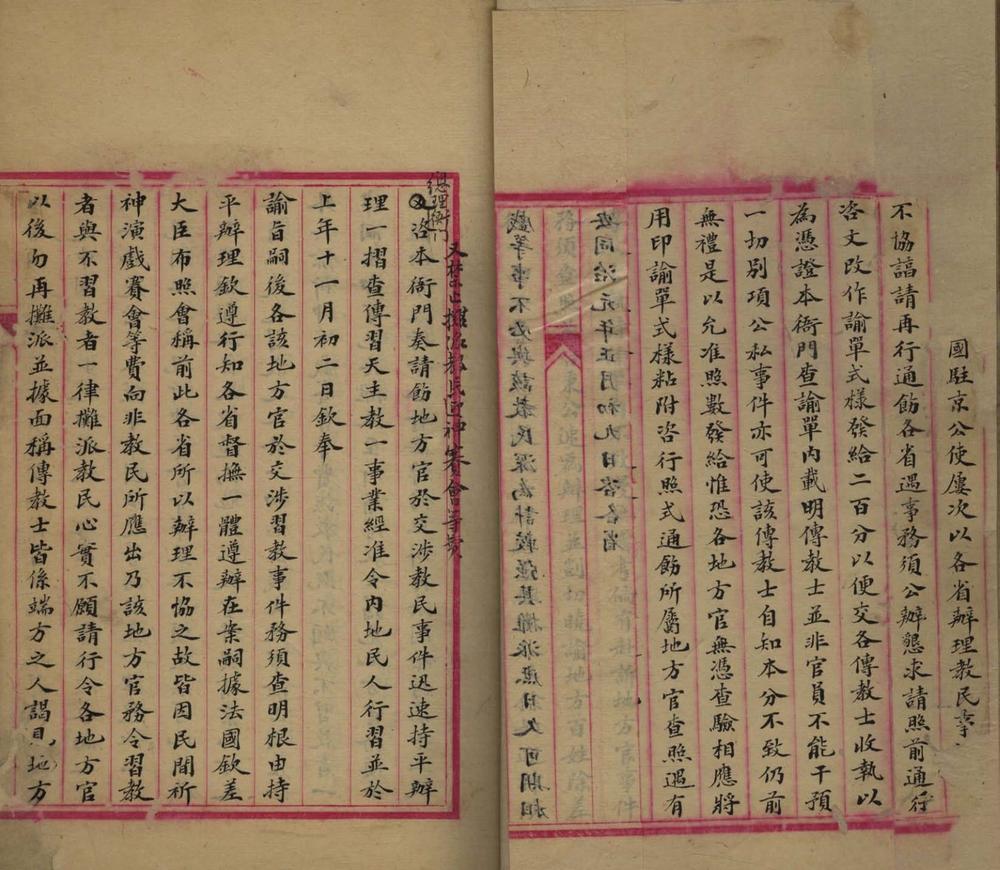 國駐京公使屢次以各省辦理教民事
不協謟請再行通飭各省遇事務須公辦懇求請照前通行
咨文改作諭單式樣發給二百分以便交各傳教士收執以
為憑證本衙門查諭單內載明傳教士並非官員不能干預
一切別項公私事件亦可使該傳教士自知本分不致仍前
無禮是以允准照數發給惟恐各地方官無憑查驗相應將
用印諭單式樣粘附咨行照式通飭所屬地方官查照遇有
又禁止攤派教民迎神賽會等費
總理衙門
咨本衙門奏請飭地方官於交涉教民事件迅速持平辦
理一摺查傳習天主教一事業經准令內地民人行習並於
上年十一月初二日欽奉
諭旨嗣後各該地方官於交涉習教事件務須查明根由持
平辦理欽遵行知各省督撫一體遵辦在案嗣據法國欽差
大臣布照會稱前此各省所以辦理不協之故皆因民間祈
神演戲賽會等費向非教民所應出乃該地方官務令習教
者與不習教者一律攤派教民心實不願請行令各地方官
以後勿再攤派並據面稱傳教士皆係端方之人謁見地方